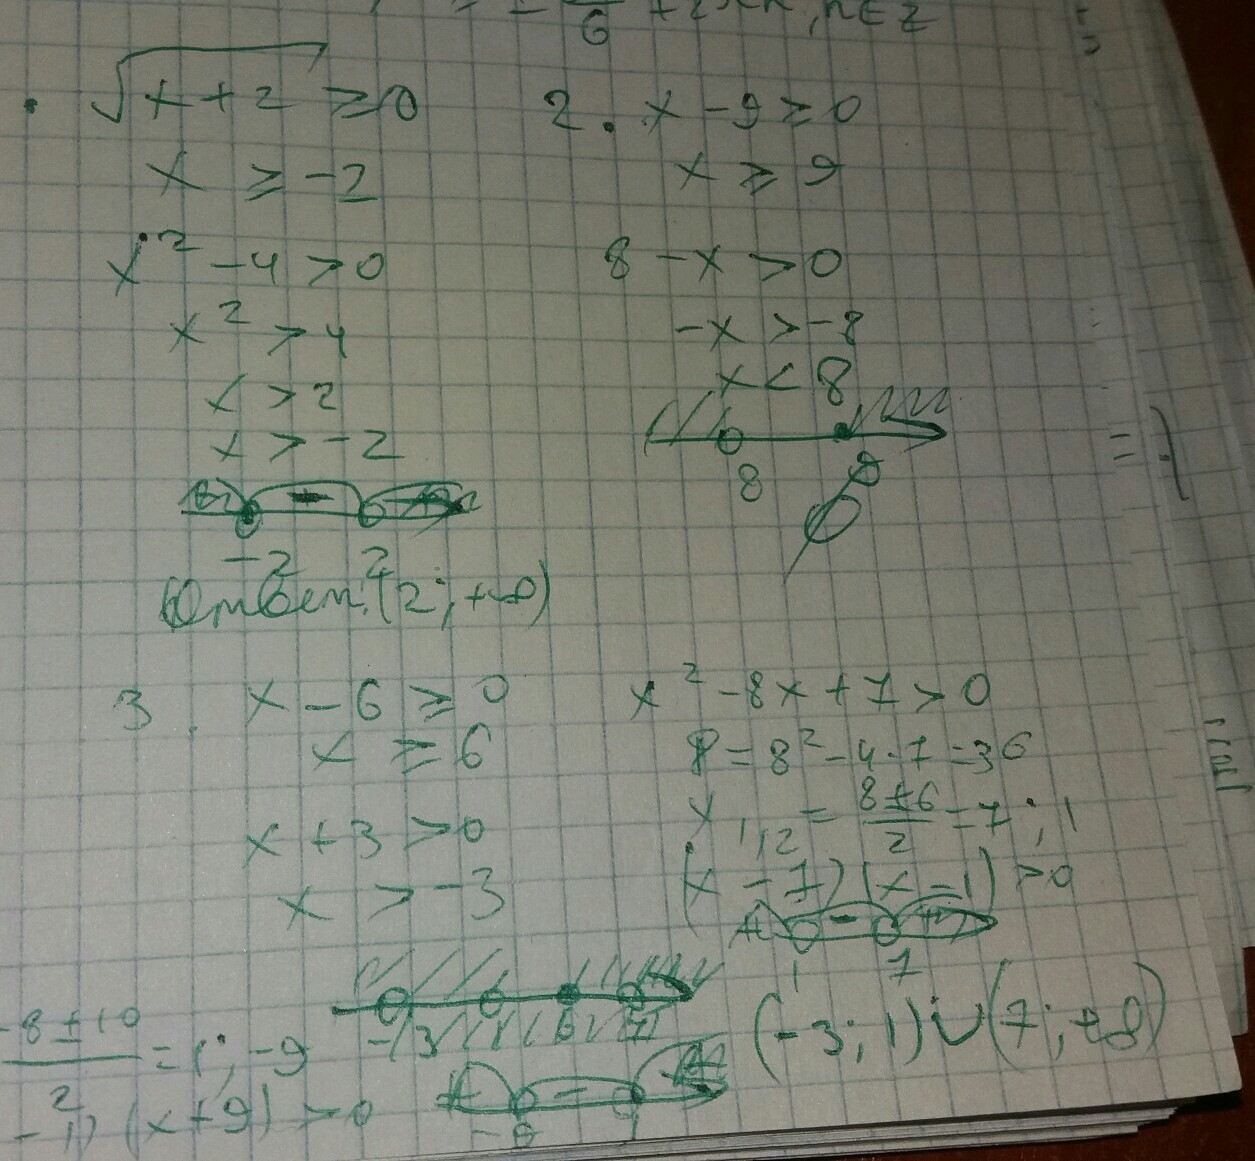 6 + 2πn, n∈Z
√x+2 ≥ 0
x ≥ -2
x² - 4 > 0
x² > 4
x > 2
x > -2
-2 2
Ответ: (2; +∞)
2. x - 9 ≥ 0
x ≥ 9
8 - x > 0
-x > -8
x < 8
8 9
∅
3. x - 6 ≥ 0
x ≥ 6
x + 3 > 0
x > -3
-3 1 6 7
x² - 8x + 7 > 0
D = 8² - 4·7 = 36
x₁,₂ = (8±6)/2 = 7; 1
(x - 7)(x - 1) > 0
+ - +
1 7
(-3; 1) ∪ (7; +∞)
-8 ± 10 / 2 = 1; -9
-1)(x+9) > 0
+ - +